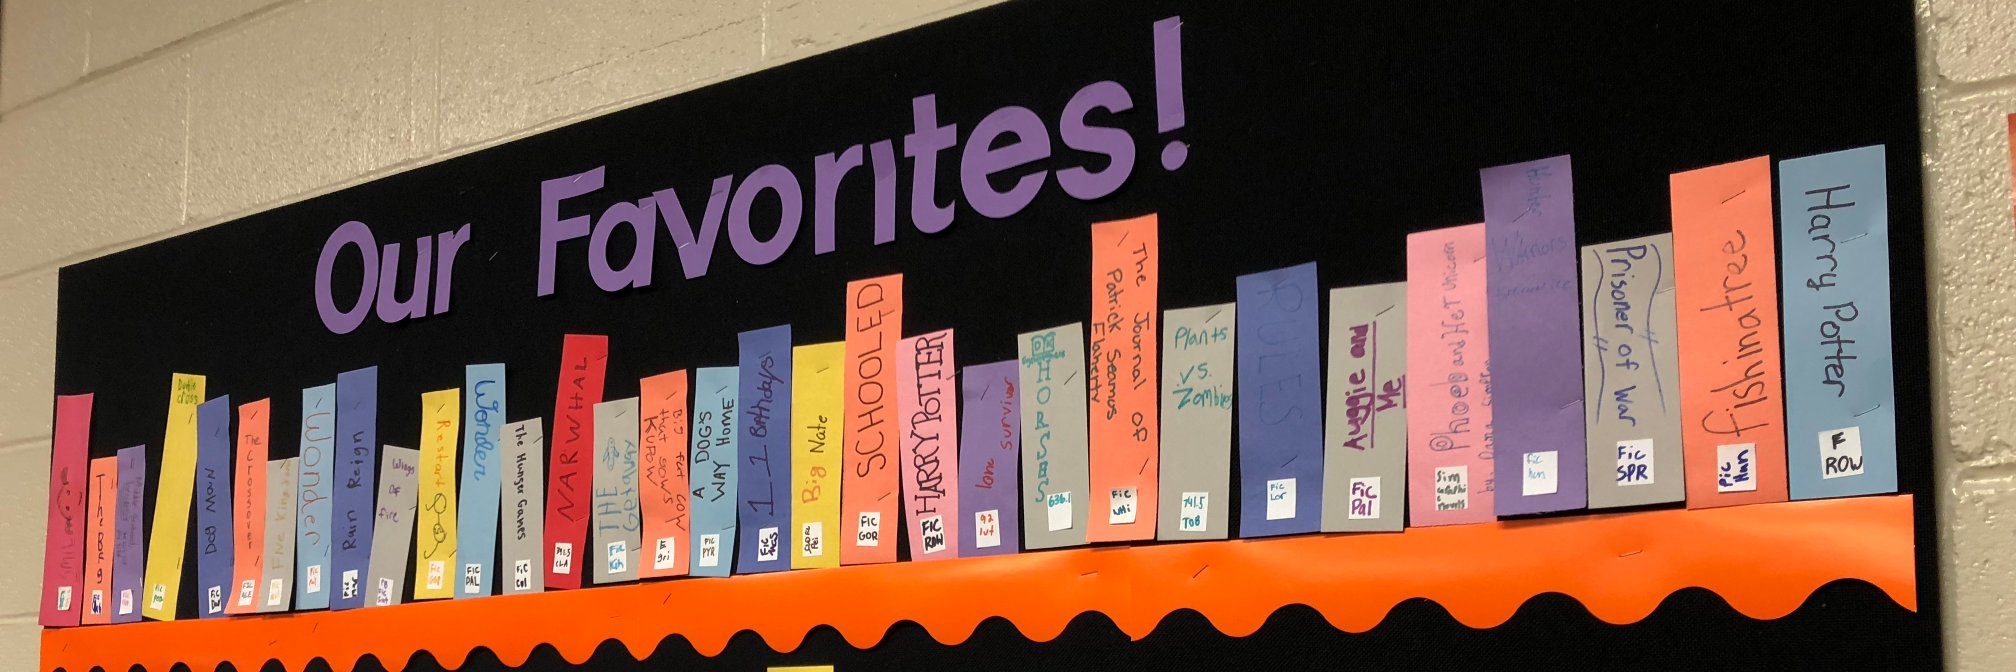 Our Favorites!
Double
cross
Dog Man
The Crossover
Wonder
Rain Reign
Wings
of
Fire
Restart
Wonder
FIC
PAL
The Hunger Games
FIC
Col
NARWHAL
741.5
CLA
THE
Getaway
Big fat cow
that goes
KUPOW
A DOG'S
WAY HOME
FIC
PYR
11 Birthdays
FIC
Mas
Big Nate
SCHOOLED
FIC
GOR
HARRY POTTER
FIC
ROW
lone survivor
92
lut
HORSES
636.1
The Journal of
Patrick Seamus
Flaherty
Fic
Whi
Plants
vs.
Zombies
741.5
TOB
RULES
Fic
Lor
Auggie and
Me
Fic
Pal
Phoebe and Her Unicorn
by: Dana Simpson
Hunter
Warriors
Fic
Prisoner of War
Fic
SPR
fishinatree
Fic
Hun
Harry Potter
F
ROW